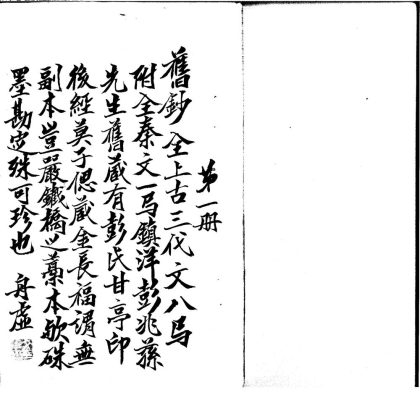 第一册
舊鈔全上古三代文八冩
附全秦文一冩鎮洋彭兆蓀
先生舊藏有彭氏甘亭印
後經莫子偲藏金長福謂無
副本豈嚴鐵橋之藁本歟硃
墨勘定殊可珍也 舟虛